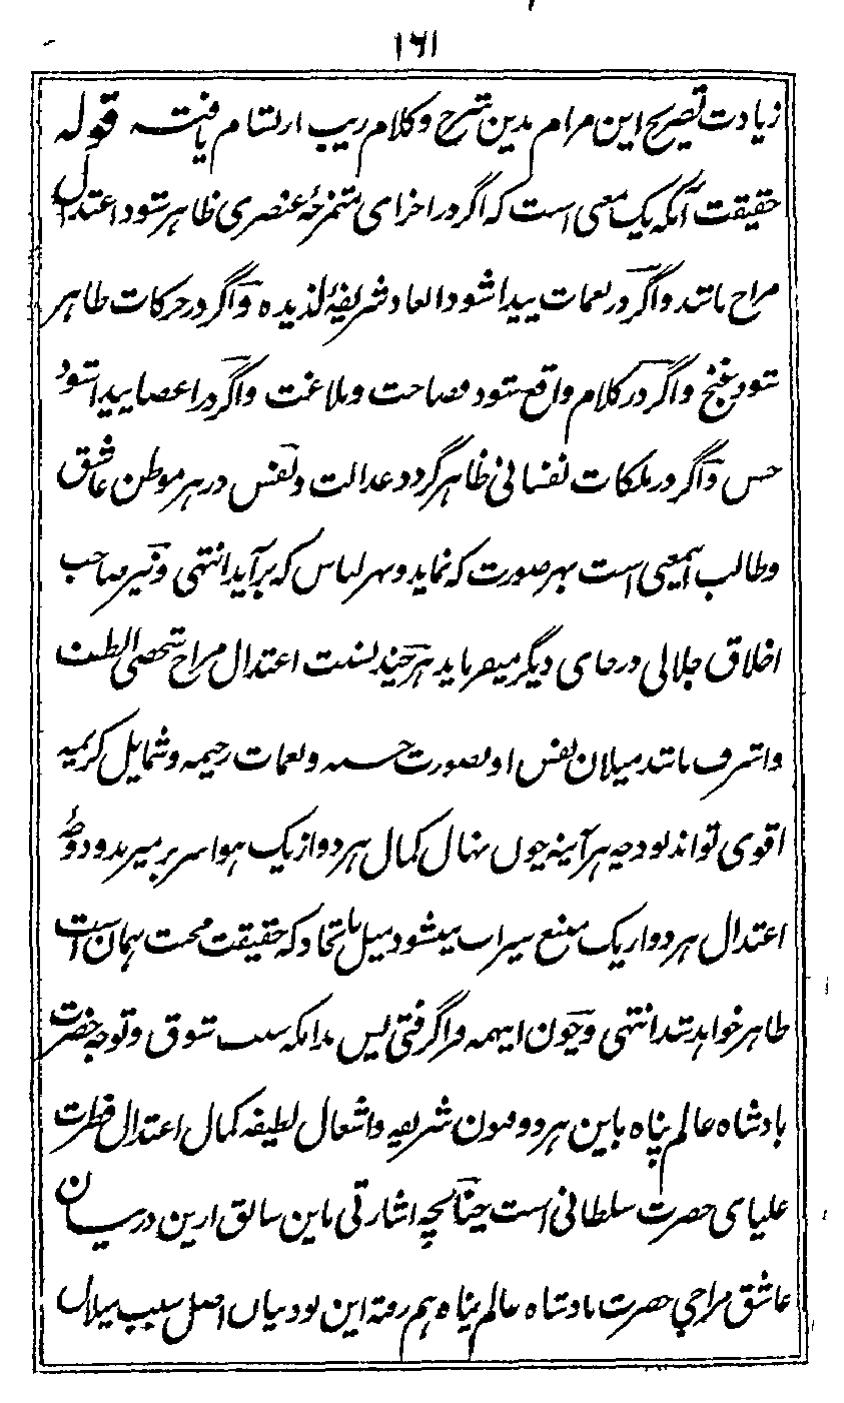 ۱۶۱
زیادت تصریح این مرام بدین شرح و کلام زیب ارتسام یافت قوله
حقیقت آنکه یک معنی است که اگر در اجزای ممتزجهٔ عنصری ظاهر شود اعتدال
مزاج باشد و اگر در نغمات پیدا شود ابعاد شریفهٔ لذیذه و اگر در حرکات ظاهر
شود غنج و اگر در کلام واقع شود فصاحت و بلاغت و اگر در اعضا پیدا شود
حسن و اگر در ملکات نفسانی ظاهر گردد عدالت و نفس در هر موطن عاشق
و طالب اینمعنی است بهر صورت که نماید و بهر لباس که برآید انتهی و نیز صاحب
اخلاق جلالی در جای دیگر میفرماید هر چند نسبت اعتدال مزاج شخصی الطف
و اشرف باشد میلان نفس او بصورت حسنه و نغمات رخیمه و شمایل کریمه
اقوی تواند بود چه هر آینه چون نهال کمال هر دو از یک هوا سر بر میزند و دوحهٔ
اعتدال هر دو از یک منبع سیراب میشود میل باتحاد که حقیقت محبت همان است
ظاهر خواهد شد انتهی و چون اینهمه فرا گرفتی پس بدانکه سبب شوق و توجه حضرت
بادشاه عالم پناه باین هر دو فنون شریفه و اشغال لطیفه کمال اعتدال فطرت
علیای حضرت سلطانی است چنانچه اشارتی باین سابق ازین در بیان
عاشق مزاجی حضرت بادشاه عالم پناه هم رفته این بود بیان اصل سبب میلان